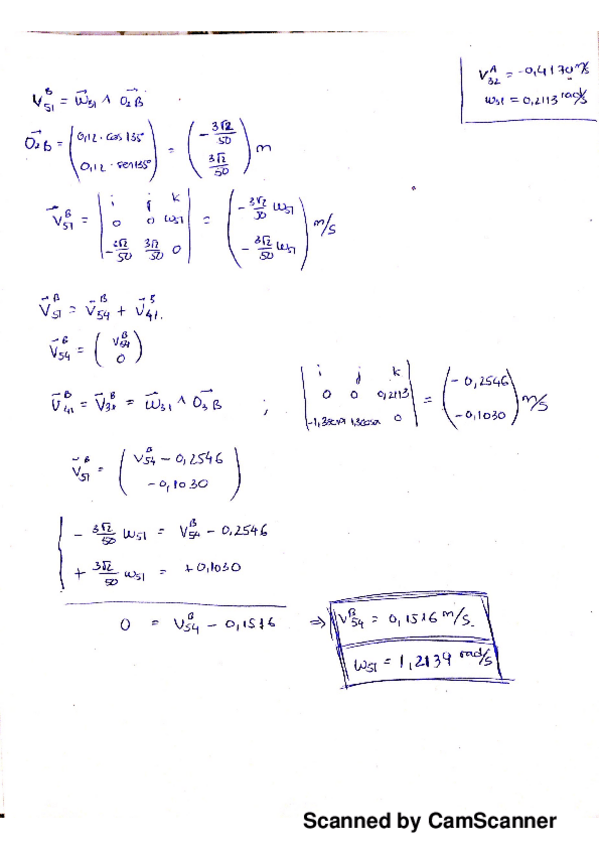 V₃₂ᴬ = -0,4170 m/s
ω₃₁ = 0,2113 rad/s
V₅₁ᴮ = ω₅₁ ∧ O₂B
O₂B = (0,12 · cos 135° 0,12 · sen 135°) = (-3√2/50 3√2/50) m
V₅₁ᴮ = | i j k 0 0 ω₅₁ -3√2/50 3√2/50 0 | = (-3√2/50 ω₅₁ -3√2/50 ω₅₁) m/s
V₅₁ᴮ = V₅₄ᴮ + V₄₁ᴮ.
V₅₄ᴮ = (V₅₄ᴮ 0)
V₄₁ᴮ = V₃₁ᴮ = ω₃₁ ∧ O₃B ; | i j k 0 0 0,2113 0 | = (-0,2546 -0,1030) m/s
V₅₁ᴮ = (V₅₄ᴮ - 0,2546 -0,1030)
- 3√2/50 ω₅₁ = V₅₄ᴮ - 0,2546
+ 3√2/50 ω₅₁ = +0,1030
0 = V₅₄ᴮ - 0,1516 ⇒ V₅₄ᴮ = 0,1516 m/s.
ω₅₁ = 1,2139 rad/s
Scanned by CamScanner